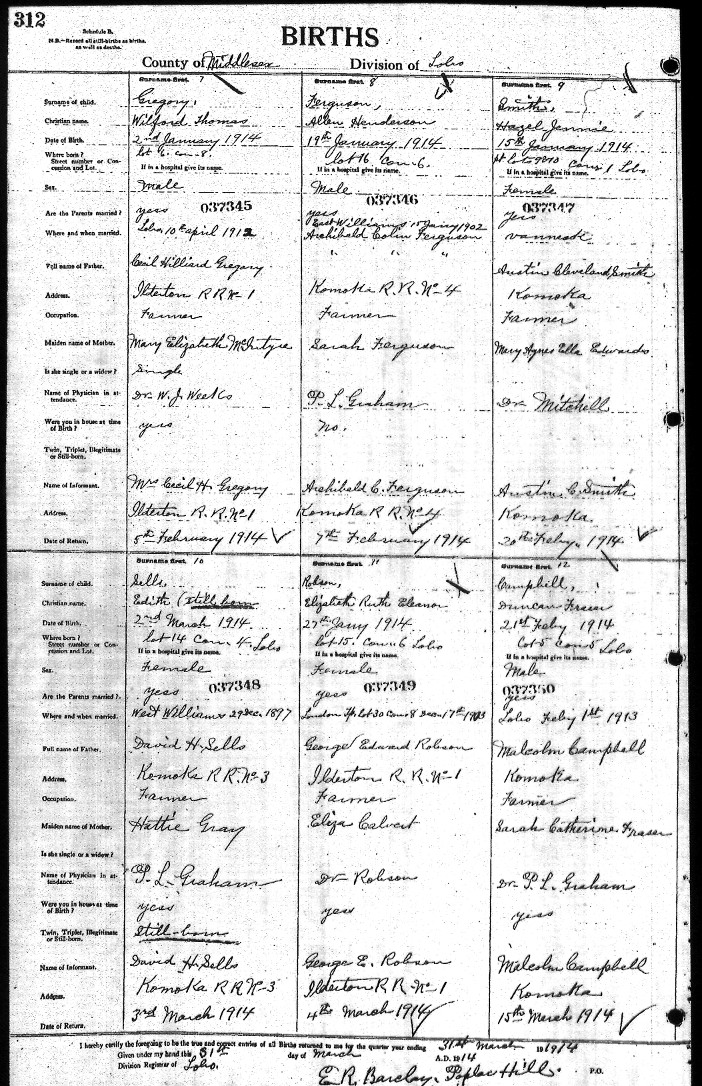 312
Schedule B.
N.B.—Record all still-births as births, as well as deaths.
BIRTHS
County of Middlesex Division of Lobo
Surname first. 7 Surname first. 8 Surname first. 9
Surname of child. Gregory, Ferguson, Smith,
Christian name. Wilford Thomas Allen Henderson Hazel Jennie
Date of Birth. 2nd January 1914 19th January 1914 15th January 1914
Where born? lot 6. con 8. lot 16 Con 6. pt lots 9&10 Con 1 Lobo
Street number or Concession and Lot. If in a hospital give its name. If in a hospital give its name. If in a hospital give its name.
Sex. Male Male Female
037345 037346 037347
Are the Parents married? yess yess yess
Where and when married. Lobo 10th april 1912 East Williams 15 Jany 1902 Vanneck
Archibald Colin Ferguson
Full name of Father. Cecil Hilliard Gregory " " " Austin Cleveland Smith
Address. Ilderton R R No 1 Komoka R. R. No 4 Komoka
Occupation. Farmer Farmer Farmer
Maiden name of Mother. Mary Elizabeth McIntyre Sarah Ferguson Mary Agnes Ella Edwards
Is she single or a widow? Single
Name of Physician in attendance. Dr W. J. Weeks P L Graham Dr Mitchell
Were you in house at time of Birth? yess no.
Twin, Triplet, Illegitimate or Still-born.
Name of Informant. Mrs Cecil H. Gregory Archibald C. Ferguson Austin C. Smith
Address. Ilderton R. R. No 1 Komoka R R No 4 Komoka
Date of Return. 5th February 1914 7th February 1914 20th Feby. 1914
Surname first. 10 Surname first. 11 Surname first. 12
Surname of child. Sells, Robson, Campbell,
Christian name. Edith (still-born Elizabeth Ruth Eleanor Duncan Fraser
Date of Birth. 2nd March 1914 27th Jany 1914 21st Feby 1914
Where born? lot 14 Con 4. Lobo lot 15. Con 6 Lobo Lot 5 Con 5 Lobo
Street number or Concession and Lot. If in a hospital give its name. If in a hospital give its name. If in a hospital give its name.
Sex. Female Female Male
037348 037349 037350
Are the Parents married? yess yess yess
Where and when married. West Williams 29 Dec. 1897 London Tp lot 30 Con 8 Dec 17th Lobo Feby 1st 1913
Full name of Father. David H. Sells George Edward Robson Malcolm Campbell
Address. Komoka R R. No 3 Ilderton R. R. No 1 Komoka
Occupation. Farmer Farmer Farmer
Maiden name of Mother. Hattie Gray Eliza Calvert Sarah Catherine Fraser
Is she single or a widow?
Name of Physician in attendance. P. L. Graham Dr Robson Dr P. L. Graham
Were you in house at time of Birth? yess yess yess
Twin, Triplet, Illegitimate or Still-born. Still-born
Name of Informant. David H. Sells George E. Robson Malcolm Campbell
Address. Komoka R R No 3 Ilderton R R. No 1 Komoka
Date of Return. 3rd March 1914 4th March 1914 15th March 1914
I hereby certify the foregoing to be the true and correct entries of all Births returned to me for the quarter ending 31st March 1914
Given under my hand this 31st day of March A.D. 1914
Division Registrar of Lobo. E R. Barclay. Poplar Hill. P.O.